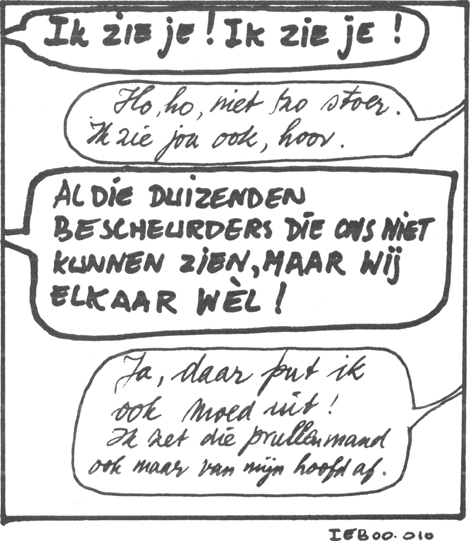 Ik zie je! Ik zie je!
Ho, ho, niet zo stoer.
Ik zie jou ook, hoor.
AL DIE DUIZENDEN
BESCHEURDERS DIE ONS NIET
KUNNEN ZIEN, MAAR WIJ
ELKAAR WÈL!
Ja, daar put ik
ook moed uit!
Ik zet die prullenmand
ook maar van mijn hoofd af.
IEBOO.010